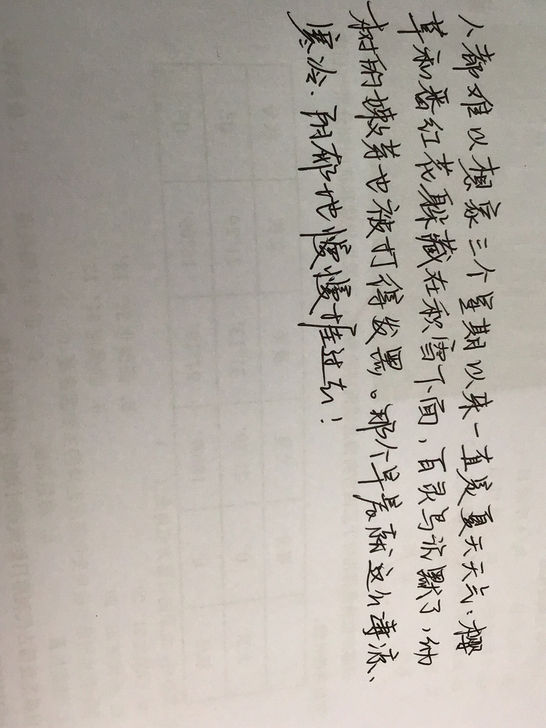 人都难以想象三个星期以来一直是夏天天气：樱
草和番红花躲藏在积雪下面，百灵鸟沉默了，幼
树的嫩芽也被打得发黑。那个早晨就这么凄凉、
寒冷、阴郁地慢慢挨过去！